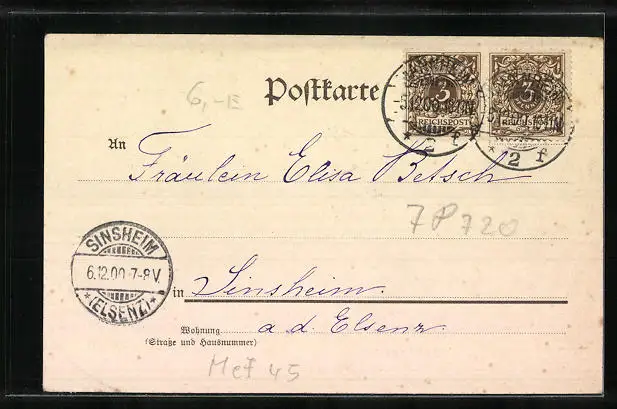 6,-E
Postkarte
3
REICHSPOST
3
REICHSPOST
-5.12.00
* 2 f
* 2 f
An Fräulein Elisa Betsch
7P720
SINSHEIM
6.12.00 7-8V.
*(ELSENZ)*
in Sinsheim.
Wohnung a. d. Elsenz.
(Straße und Hausnummer)
Mef 45